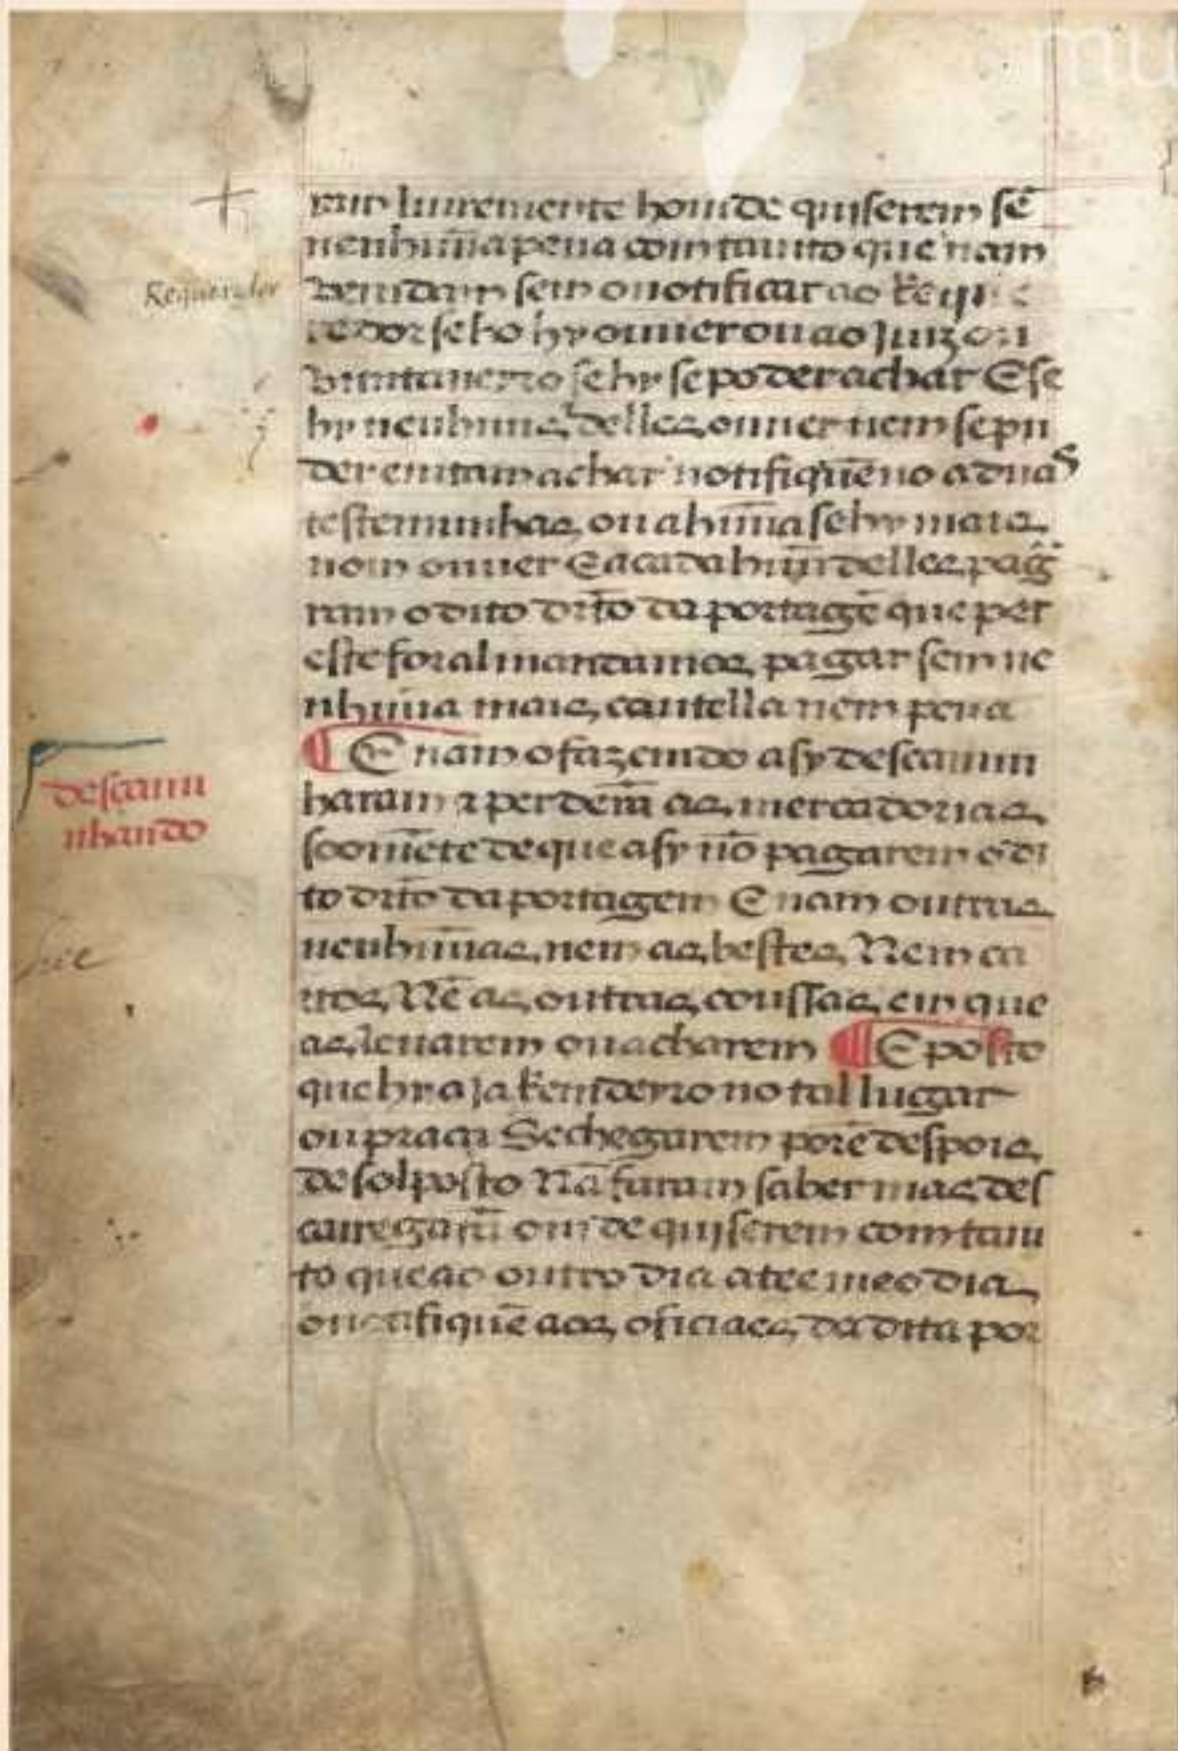 mu
liuremente homde quiserem sẽ
nenhũa pena com tamto que nam
vemdam sem o notificar ao Reque
redor se ho hy ouuer ou ao Juiz ou
vimtaneyro se hy se poder achar E se
Requeredor
hy nenhuũs delles ouuer nem se pu
derem tam achar notifiquẽno a duas
testemunhas, ou a hũa se hy mais
nom ouuer E a cada huũ delles pag
ram o dito drto da portagẽ que per
este foral mandamos pagar sem ne
nhũua mais cautella nem pena
¶ E nam o fazemdo asy descami
descami
nhando
haram τ perderã as mercadorias
soomẽte de que asy nõ pagarem o di
to drto da portagem E nam outras
nenhũas, nem as bestes, Nem ca
rros, Nẽ as, outras, coussas, em que
as, leuarem ou acharem ¶ E posto
que hy aja Remdeyro no tal lugar
ou praça Se chegarem porẽ despois
de sol posto Nã faram saber mas, des
carregarã omde quiserem com tam
to que ao outro dia atee meo dia
o notifiquẽ aos, oficiaes, da dita por